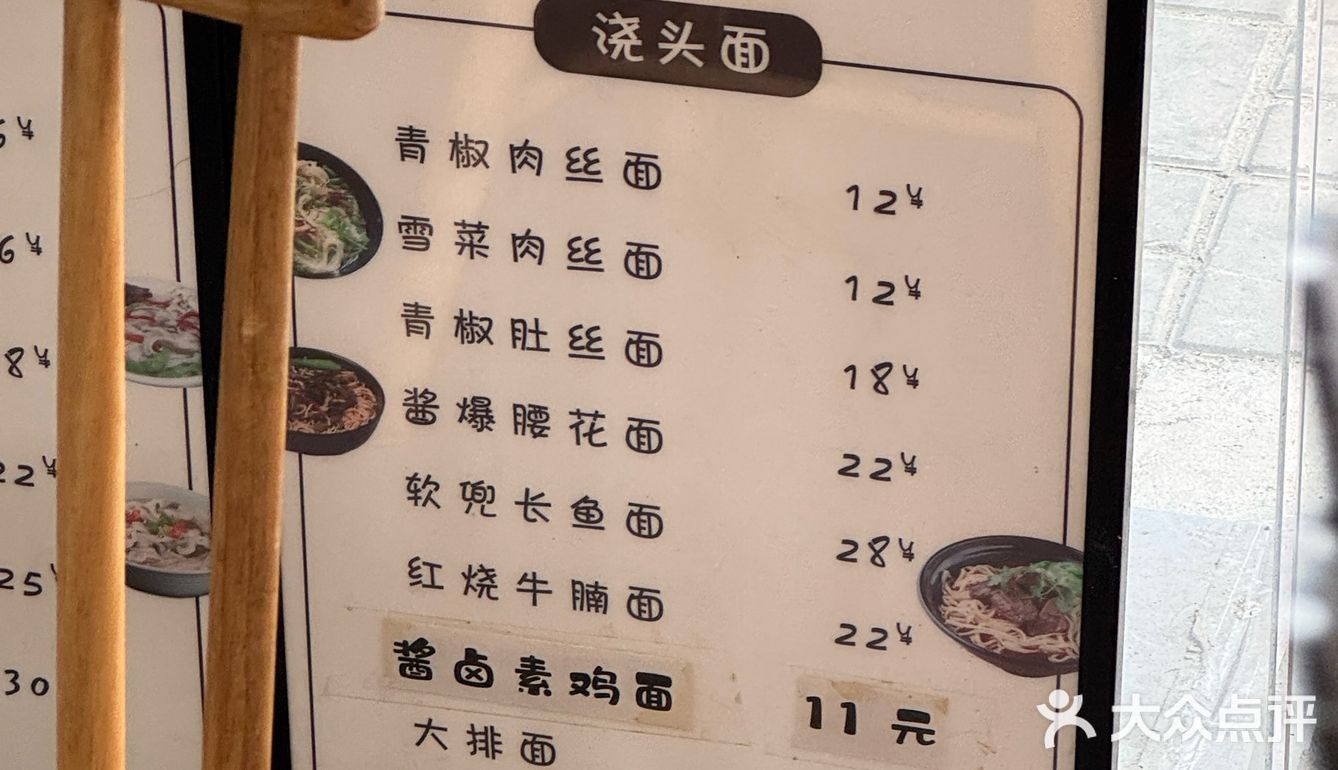 浇头面
青椒肉丝面 12¥
雪菜肉丝面 12¥
青椒肚丝面 18¥
酱爆腰花面 22¥
软兜长鱼面 28¥
红烧牛腩面 22¥
酱卤素鸡面 11元
大排面
6¥
8¥
22¥
25
30
大众点评